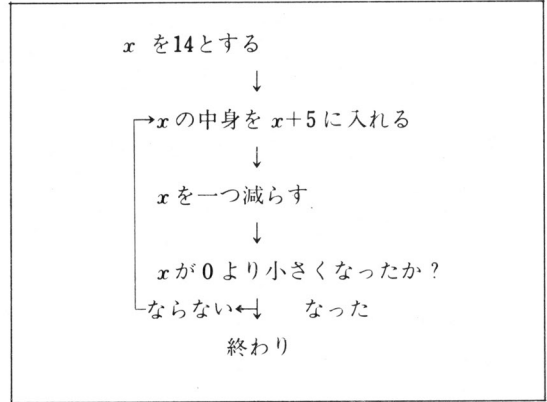 x を14とする
↓
→xの中身を x+5に入れる
↓
xを一つ減らす
↓
xが0より小さくなったか?
ならない←↓ なった
終わり